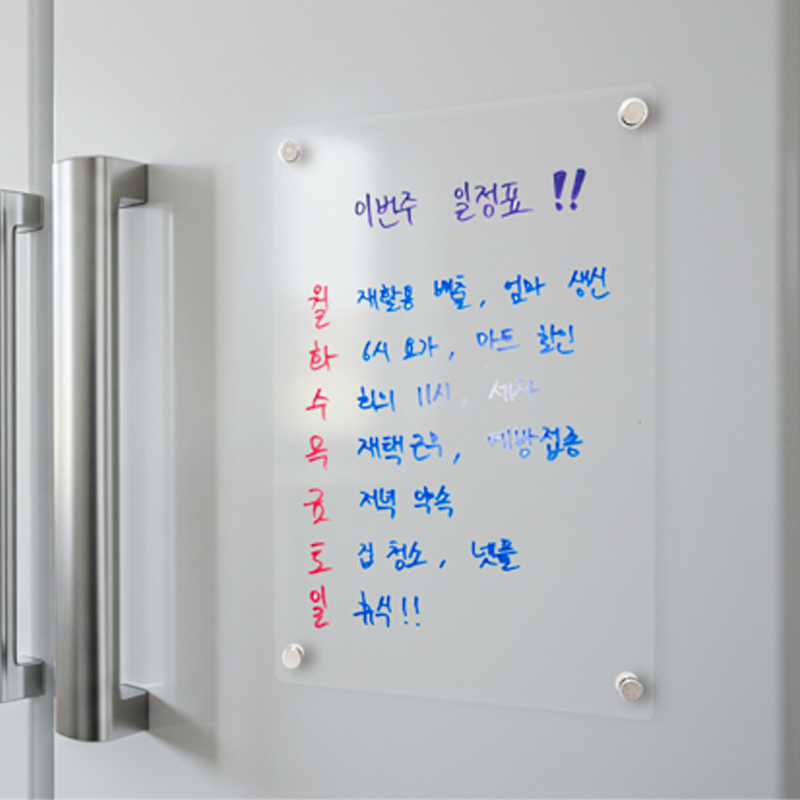 이번주 일정표 !!
월 재활용 배출, 엄마 생신
화 6시 요가, 마트 확인
수 회의 11시, 세차
목 재택근무, 예방접종
금 저녁 약속
토 집 청소, 넷플
일 휴식!!